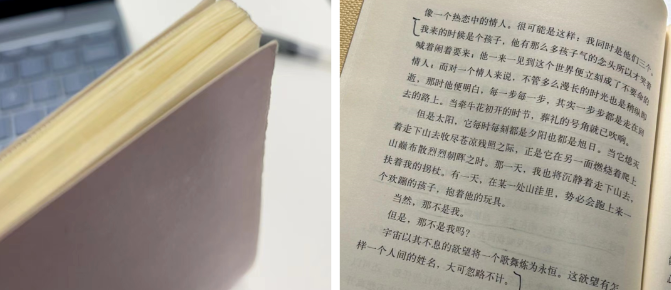 像一个热恋中的情人。很可能是这样：我同时是他们三个。
我来的时候是个孩子，他有那么多孩子气的念头所以才哭着
喊着闹着要来；他一来一见到这个世界便立刻成了不要命的
情人；而对一个情人来说，不管多么漫长的时光也是稍纵即
逝，那时他便明白，每一步每一步，其实一步步都是走在回
去的路上。当牵牛花初开的时节，葬礼的号角就已吹响。
但是太阳，它每时每刻都是夕阳也都是旭日。当它熄灭
着走下山去收尽苍凉残照之际，正是它在另一面燃烧着爬上
山巅布散烈烈朝晖之时。那一天，我也将沉静着走下山去，
扶着我的拐杖。有一天，在某一处山洼里，势必会跑上来一
个欢蹦的孩子，抱着他的玩具。
当然，那不是我。
但是，那不是我吗？
宇宙以其不息的欲望将一个歌舞炼为永恒。这欲望有怎
样一个人间的姓名，大可忽略不计。